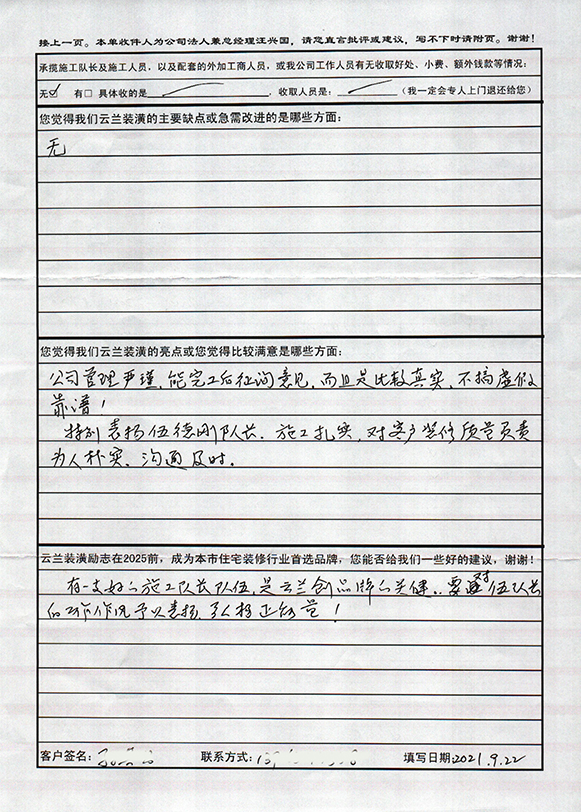 接上一页。本单收件人为公司法人兼总经理汪兴国，请您直言批评或建议，写不下时请附页。谢谢！
承揽施工队长及施工人员，以及配套的外加工商人员，或我公司工作人员有无收取好处、小费、额外钱款等情况：
无☑ 有□ 具体收的是 ，收取人员是： （我一定会专人上门退还给您）
您觉得我们云兰装潢的主要缺点或急需改进的是哪些方面：
无
您觉得我们云兰装潢的亮点或您觉得比较满意是哪些方面：
公司管理严瑾，能完工后征询意见，而且是比较真实，不搞虚假
靠谱！
特别表扬伍德刚队长，施工扎实，对客户装修质量负责
为人朴实，沟通及时。
云兰装潢励志在2025前，成为本市住宅装修行业首选品牌，您能否给我们一些好的建议，谢谢！
有一支好的施工队长队伍，是云兰创品牌的关健，要对伍队长
的工作作风予以表扬，弘扬正能量！
客户签名： 联系方式： 填写日期：2021.9.22